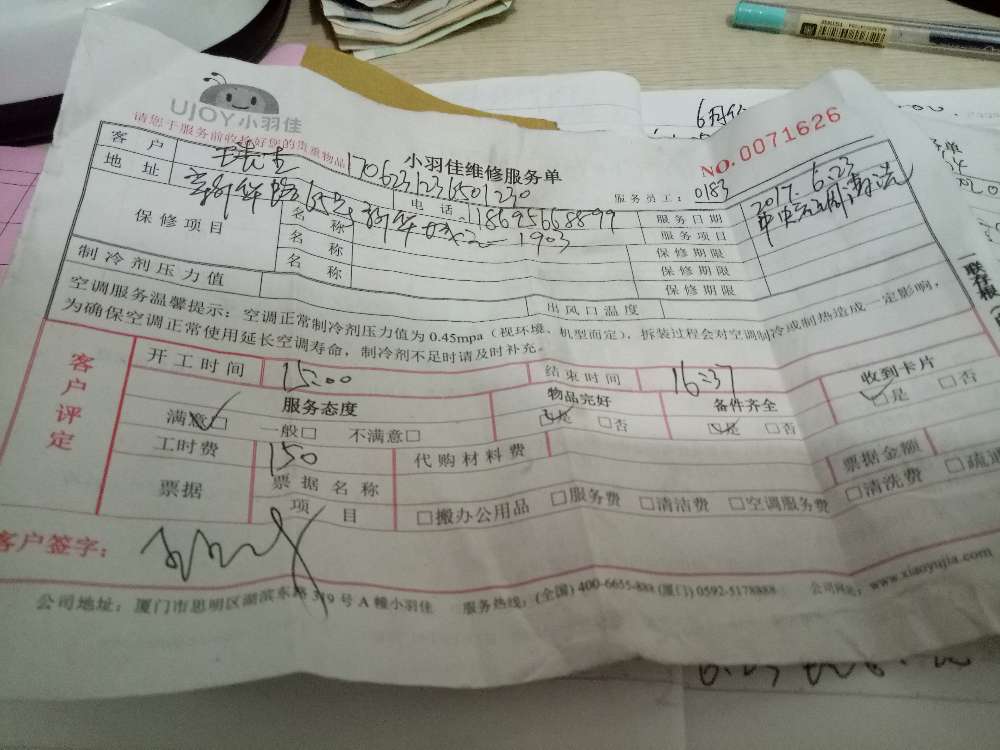 UJOY小羽佳
请您于服务前收拾好您的贵重物品
小羽佳维修服务单
NO.0071626
170623123501230
服务员工:0183
客户
电话 18695668899
服务日期 2017.6.23
地址
1903
服务项目 中央空调清洗
保修项目
名称
保修期限
名称
保修期限
名称
保修期限
制冷剂压力值
出风口温度
空调服务温馨提示:空调正常制冷剂压力值为0.45mpa(视环境、机型而定),拆装过程会对空调制冷或制热造成一定影响,
为确保空调正常使用延长空调寿命,制冷剂不足时请及时补充。
客户评定
开工时间 15:00
结束时间 16:37
服务态度
物品完好
备件齐全
收到卡片
满意□ 一般□ 不满意□
□是 □否
□是 □否
□是 □否
工时费 150
代购材料费
票据金额
票据
票据名称
项目
□搬办公用品 □服务费 □清洁费 □空调服务费 □清洗费 □疏通
客户签字:
公司地址:厦门市思明区湖滨东路319号A幢小羽佳 服务热线:(全国)400-6655-888(厦门)0592-5178888 公司网址:www.xiaoyujia.com
一联存根
6月份